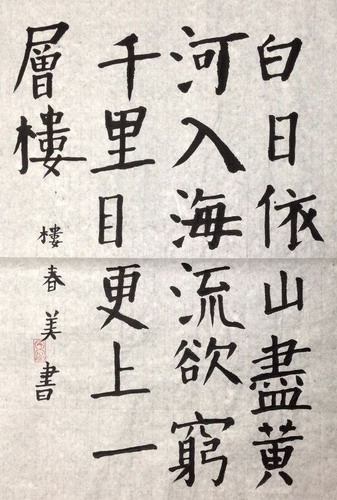 白日依山盡黃
河入海流欲窮
千里目更上一
層樓
樓春美書